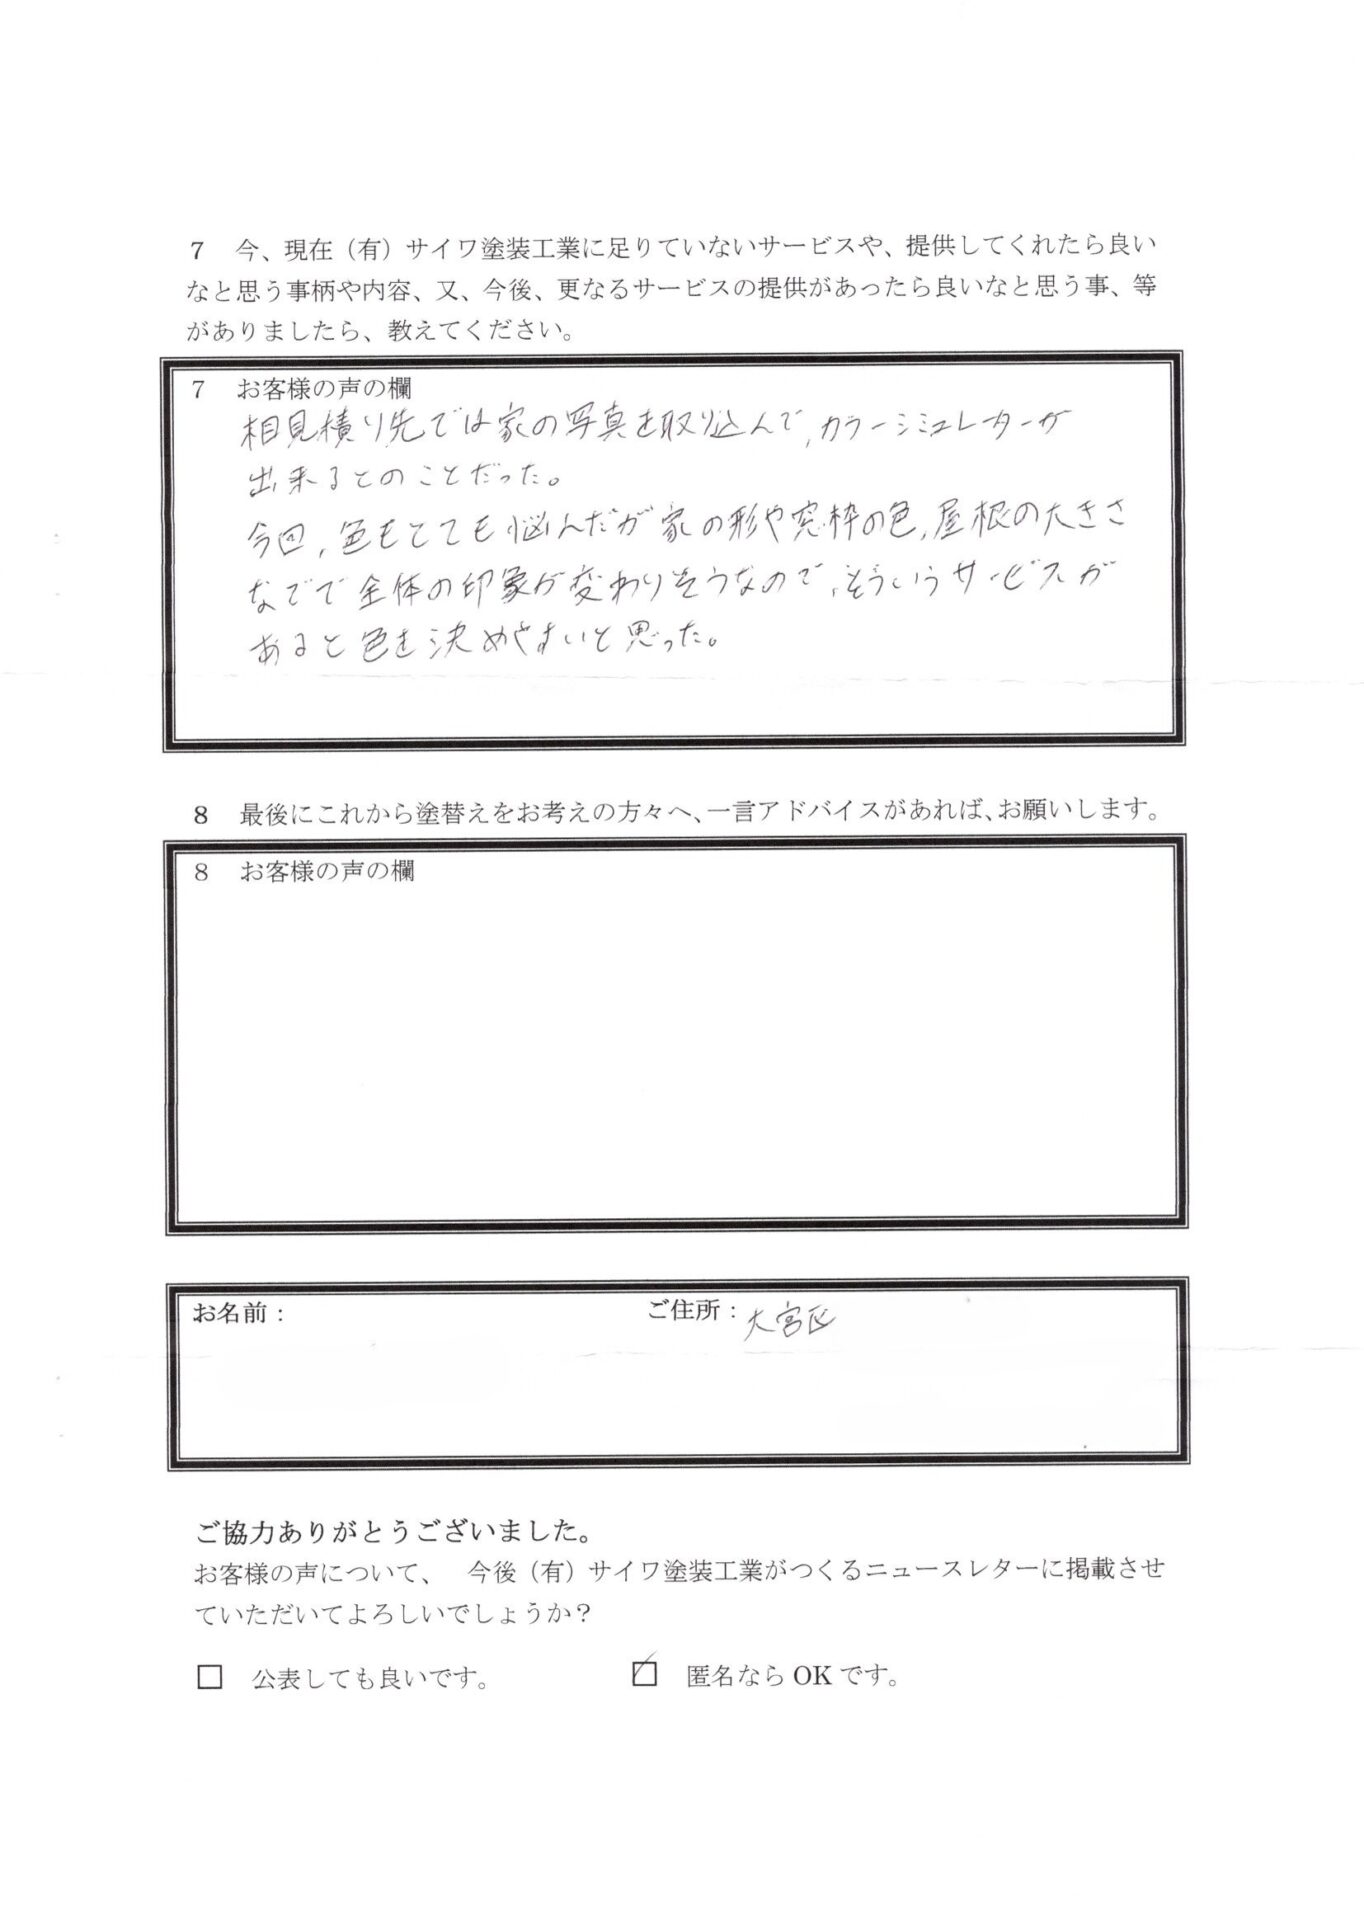 7 今、現在（有）サイワ塗装工業に足りていないサービスや、提供してくれたら良い
なと思う事柄や内容、又、今後、更なるサービスの提供があったら良いなと思う事、等
がありましたら、教えてください。
7 お客様の声の欄
相見積り先では家の写真を取り込んで、カラーシミュレーターが
出来るとのことだった。
今回、色もとても悩んだが家の形や窓枠の色、屋根の大きさ
などで全体の印象が変わりそうなので、そういうサービスが
あると色を決めやすいと思った。
8 最後にこれから塗替えをお考えの方々へ、一言アドバイスがあれば、お願いします。
8 お客様の声の欄
お名前： ご住所：大宮区
ご協力ありがとうございました。
お客様の声について、 今後（有）サイワ塗装工業がつくるニュースレターに掲載させ
ていただいてよろしいでしょうか？
□ 公表しても良いです。 ☑ 匿名なら OK です。